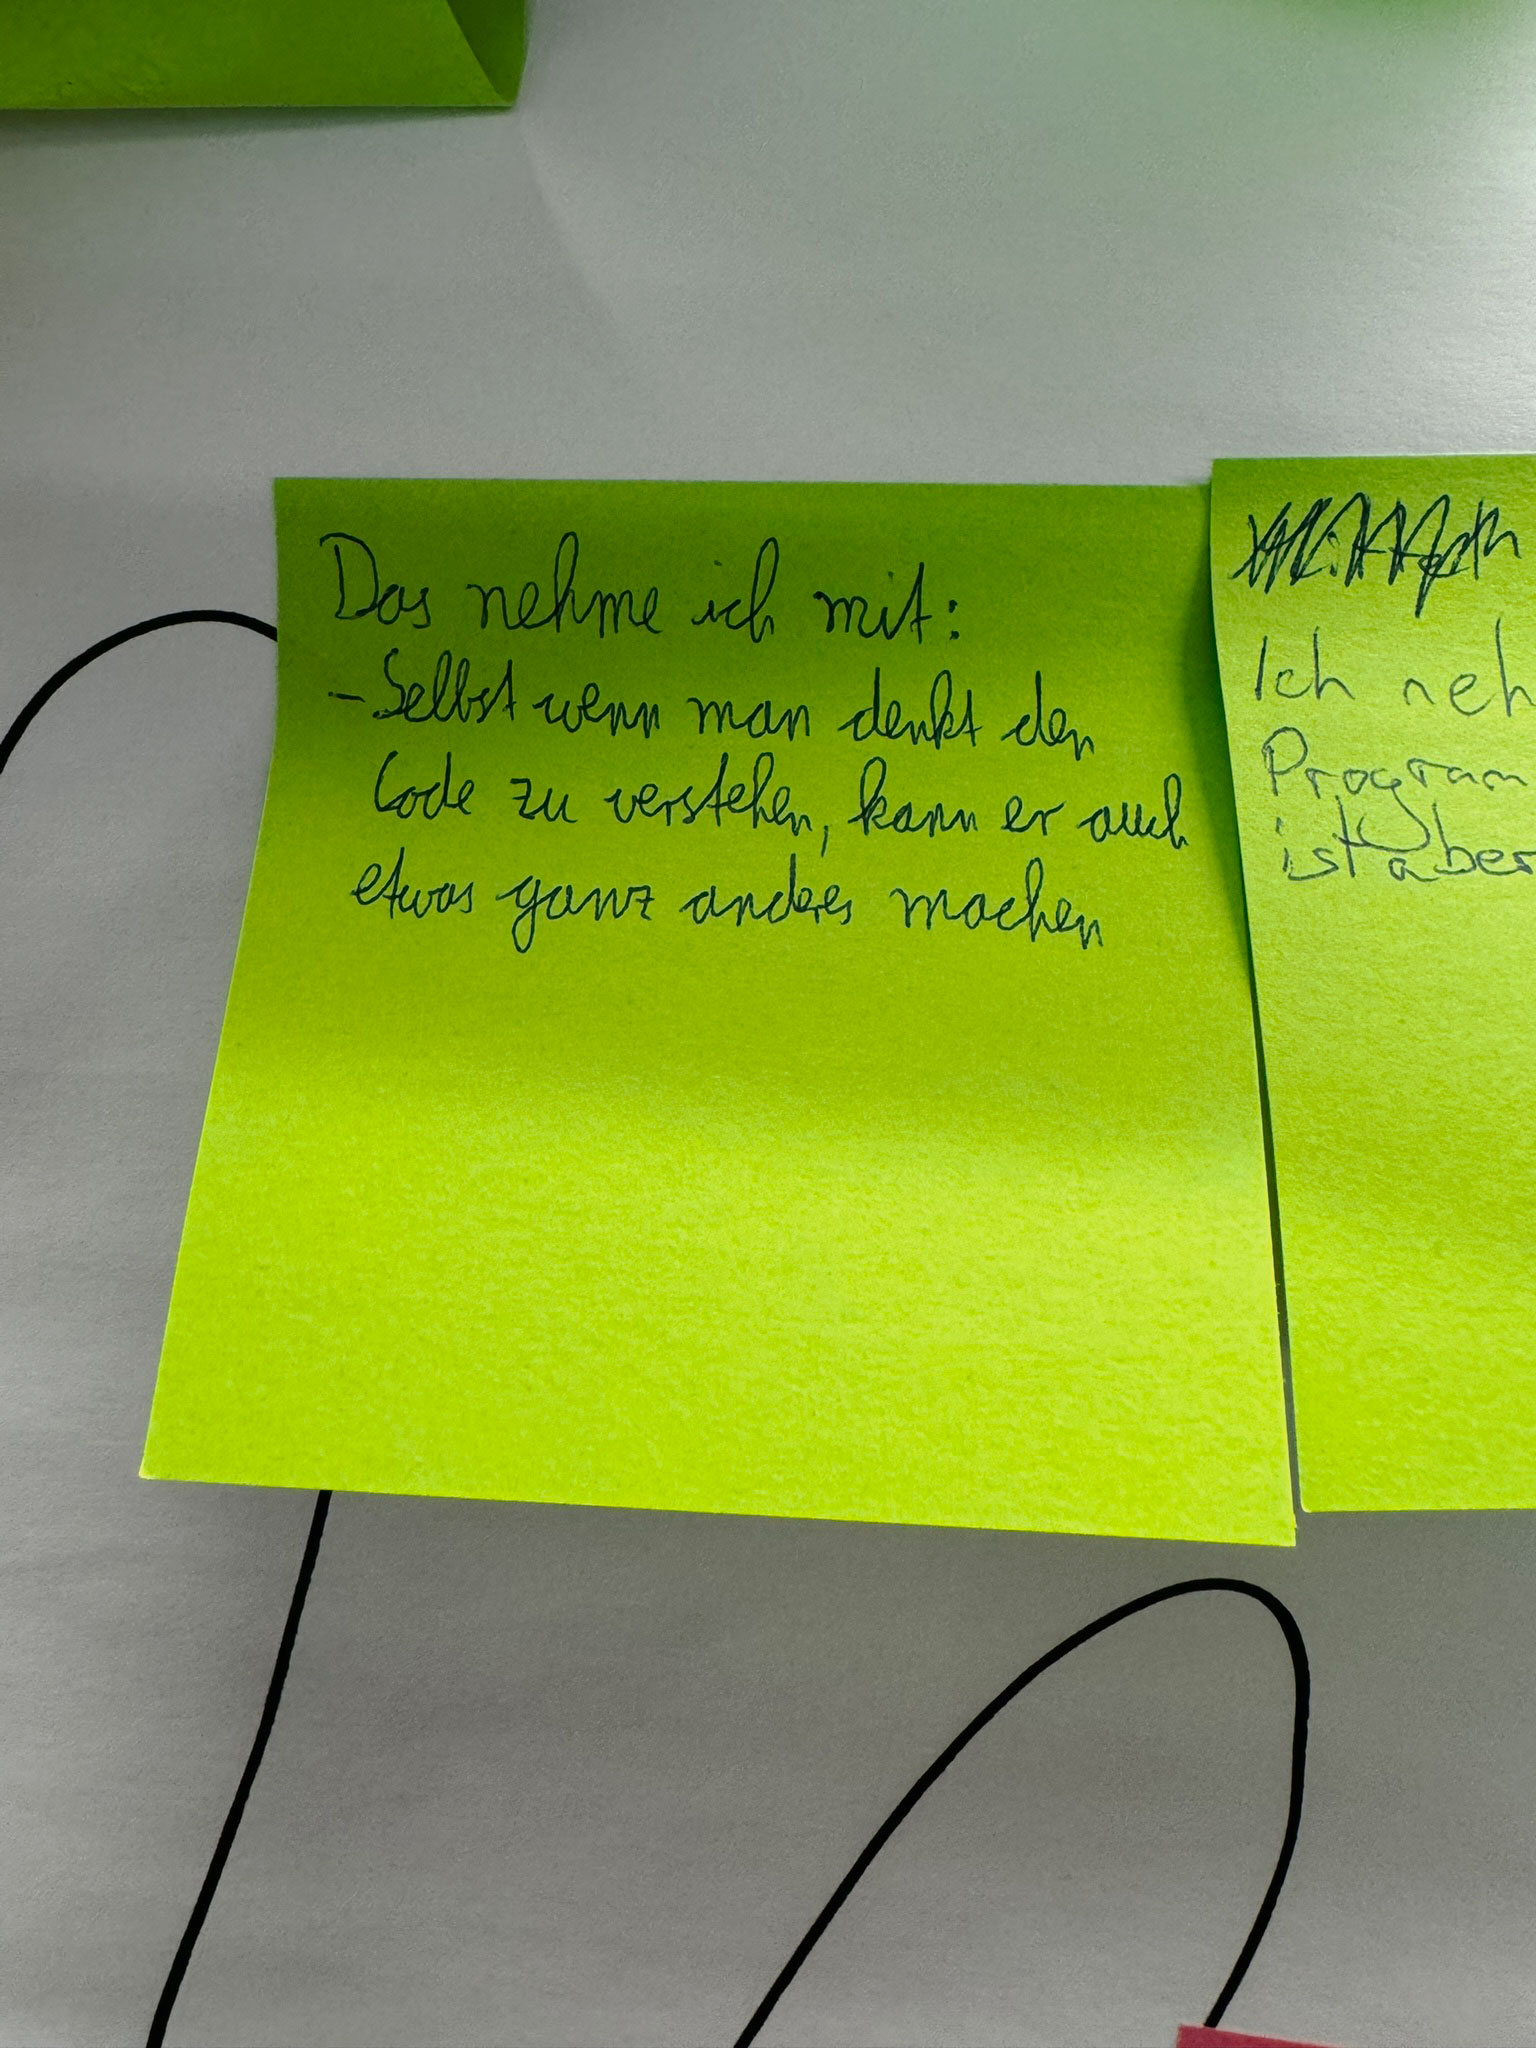 Das nehme ich mit:
- Selbst wenn man denkt den
Code zu verstehen, kann er auch
etwas ganz anderes machen
Ich neh
Program
ist aber